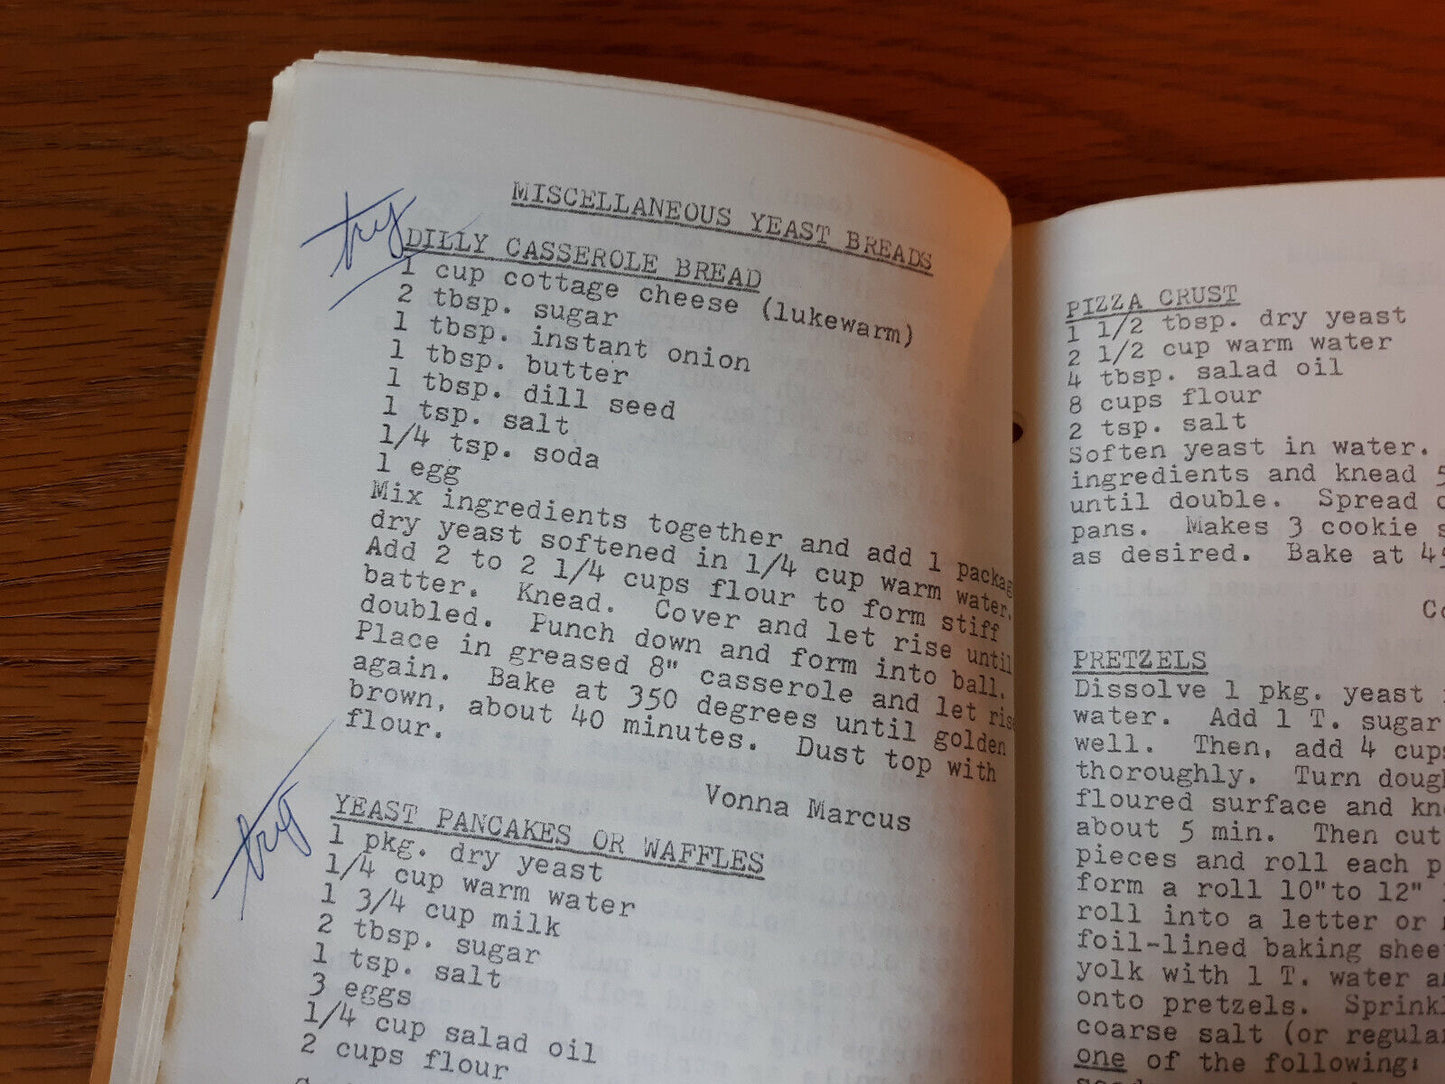 MISCELLANEOUS YEAST BREADS
try
DILLY CASSEROLE BREAD
1 cup cottage cheese (lukewarm)
2 tbsp. sugar
1 tbsp. instant onion
1 tbsp. butter
1 tbsp. dill seed
1 tsp. salt
1/4 tsp. soda
1 egg
Mix ingredients together and add 1 packag
dry yeast softened in 1/4 cup warm water.
Add 2 to 2 1/4 cups flour to form stiff
batter. Knead. Cover and let rise until
doubled. Punch down and form into ball.
Place in greased 8" casserole and let rise
again. Bake at 350 degrees until golden
brown, about 40 minutes. Dust top with
flour.
Vonna Marcus
try
YEAST PANCAKES OR WAFFLES
1 pkg. dry yeast
1/4 cup warm water
1 3/4 cup milk
2 tbsp. sugar
1 tsp. salt
3 eggs
1/4 cup salad oil
2 cups flour
PIZZA CRUST
1 1/2 tbsp. dry yeast
2 1/2 cup warm water
4 tbsp. salad oil
8 cups flour
2 tsp. salt
Soften yeast in water.
ingredients and knead 5
until double. Spread o
pans. Makes 3 cookie s
as desired. Bake at 45
Co
PRETZELS
Dissolve 1 pkg. yeast
water. Add 1 T. sugar
well. Then, add 4 cups
thoroughly. Turn dough
floured surface and kn
about 5 min. Then cut
pieces and roll each p
form a roll 10"to 12"
roll into a letter or
foil-lined baking shee
yolk with 1 T. water a
onto pretzels. Sprinkl
coarse salt (or regular
one of the following: